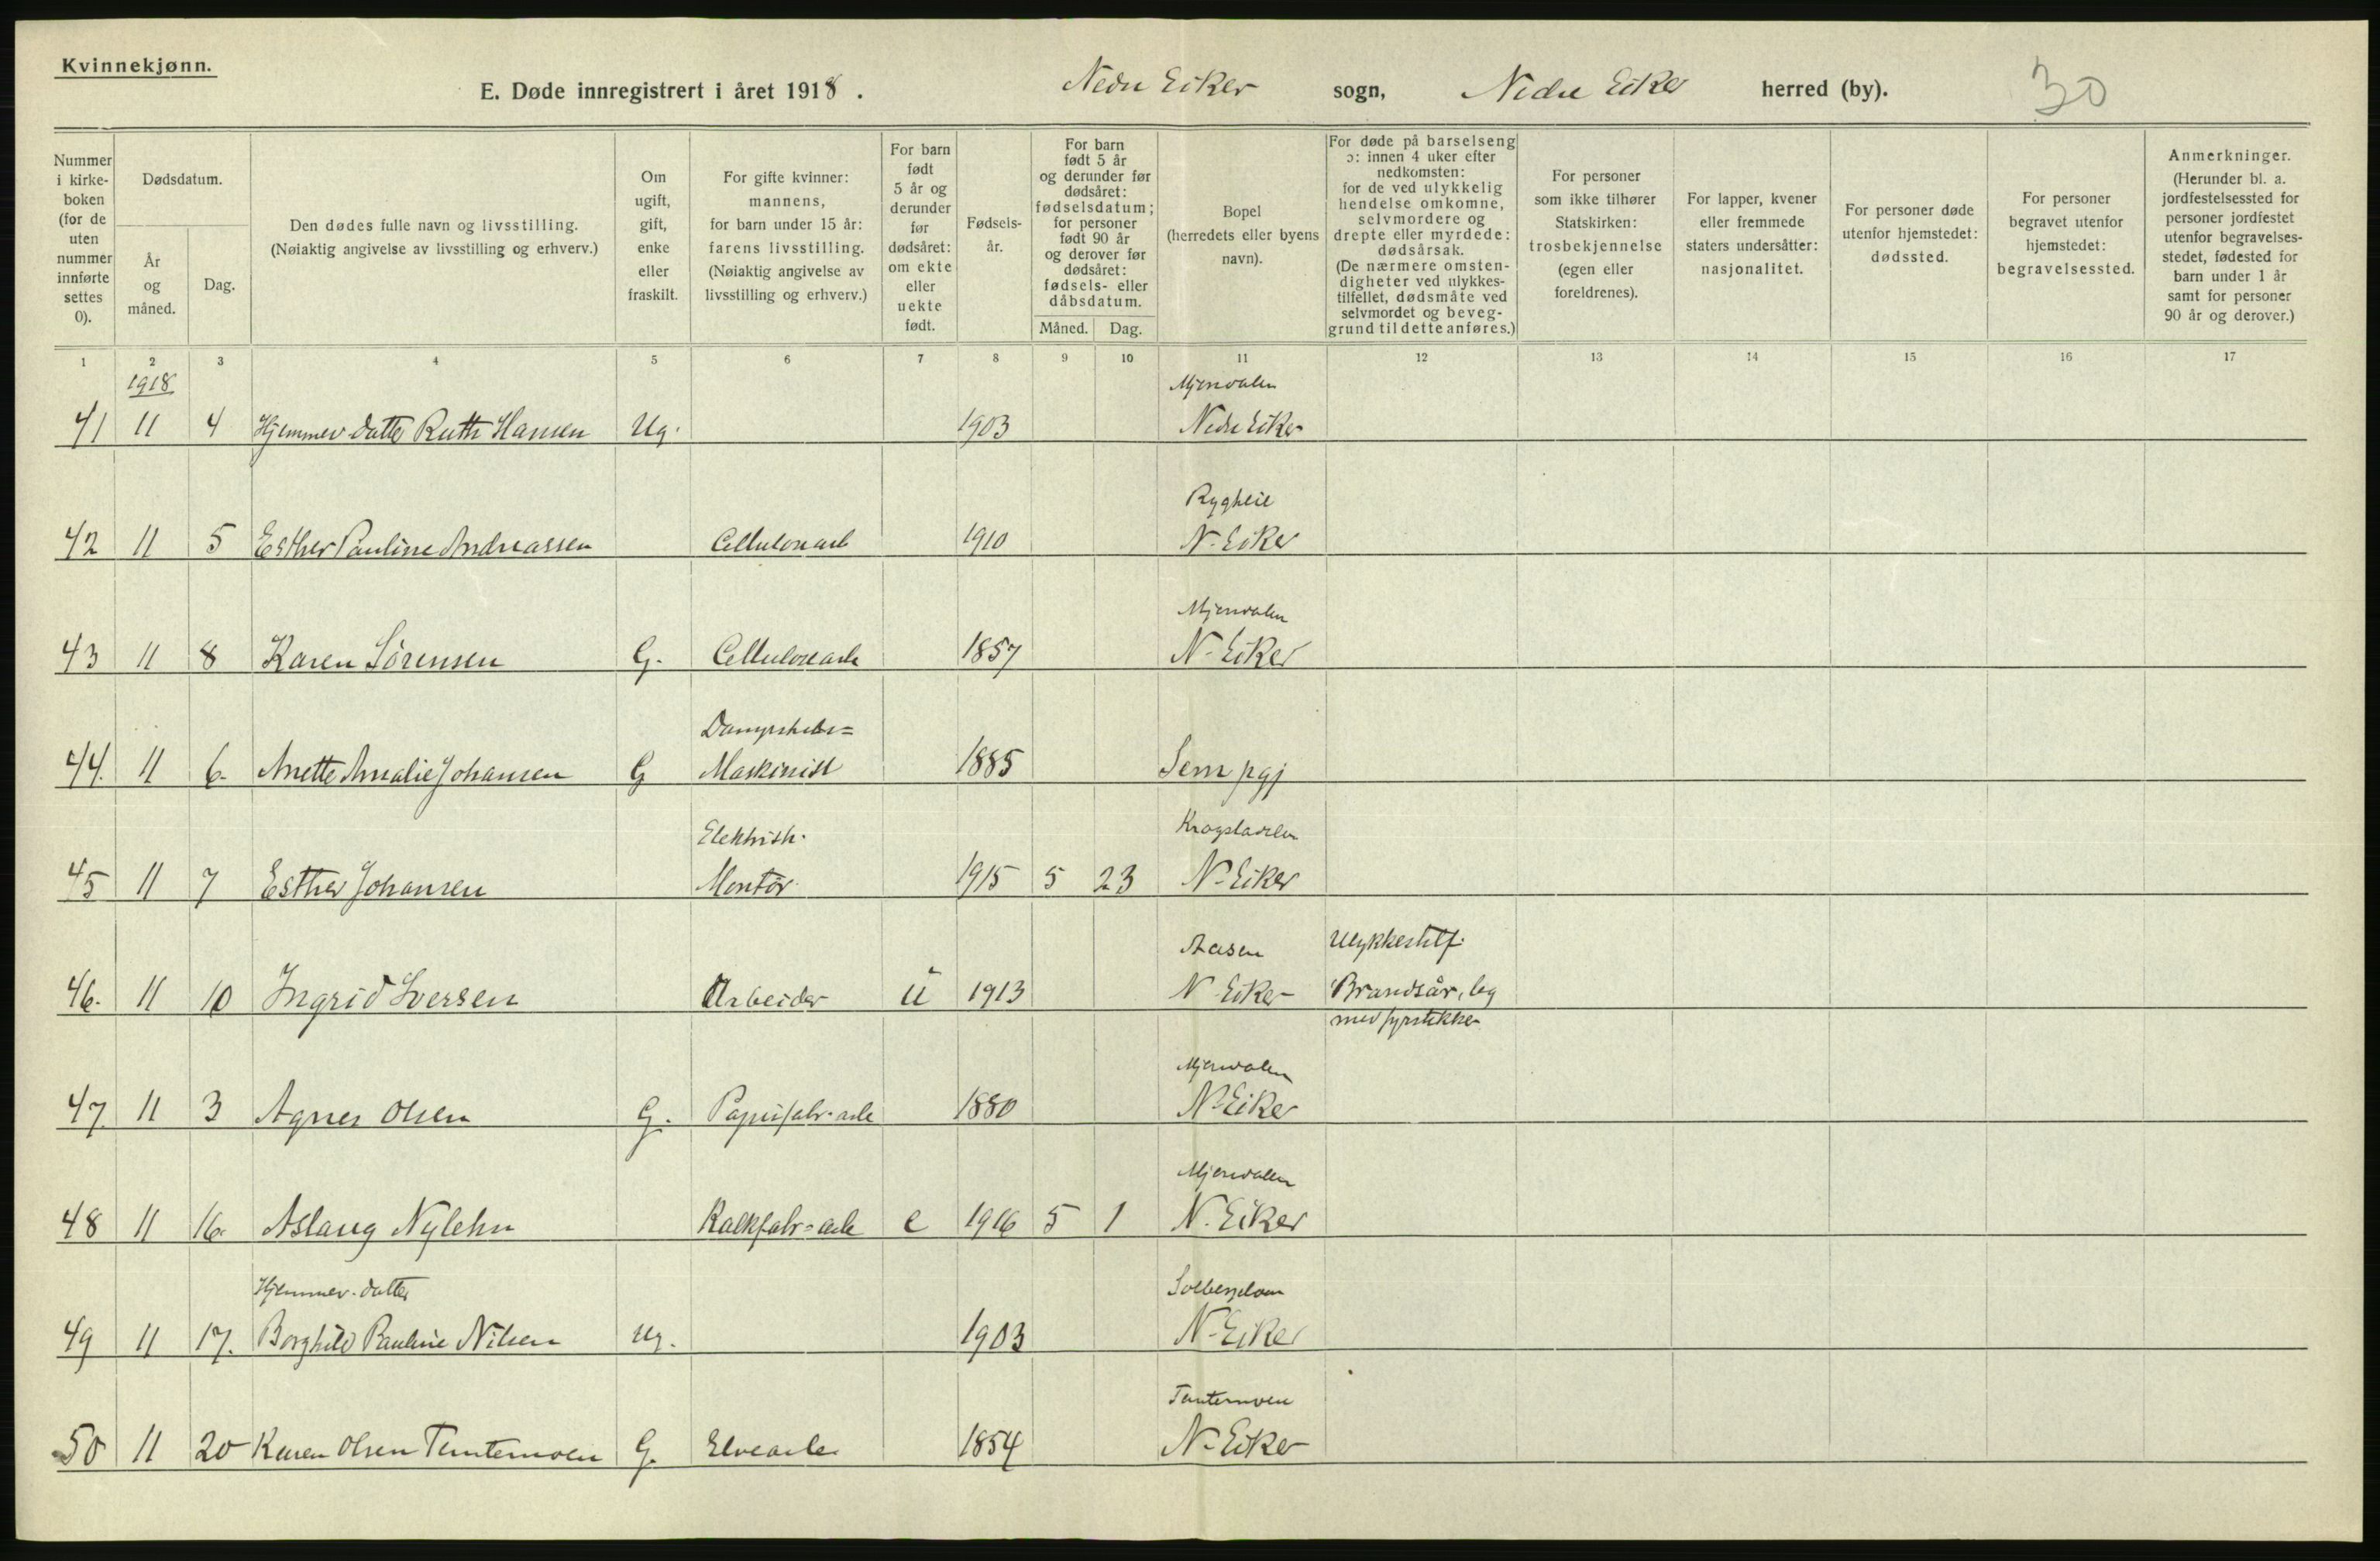 Kvinnekjønn.
E. Døde innregistrert i året 1918. Nedre Eiker sogn, Nedre Eiker herred (by). 30
Nummer i kirke- boken (for de uten nummer innførte settes 0).
Dødsdatum.
År og måned.
Dag.
Den dødes fulle navn og livsstilling.
(Nøiaktig angivelse av livsstilling og erhverv.)
Om ugift, gift, enke eller fraskilt.
For gifte kvinner: mannens, for barn under 15 år: farens livsstilling. (Nøiaktig angivelse av livsstilling og erhverv.)
For barn født 5 år og derunder før dødsåret: om ekte eller uekte født.
Fødsels- år.
For barn født 5 år og derunder før dødsåret: fødselsdatum; for personer født 90 år og derover før dødsåret: fødsels- eller dåbsdatum.
Måned. Dag.
Bopel (herredets eller byens navn).
For døde på barselseng ɔ: innen 4 uker efter nedkomsten: for de ved ulykkelig hendelse omkomne, selvmordere og drepte eller myrdede: dødsårsak. (De nærmere omsten- digheter ved ulykkes- tilfellet, dødsmåte ved selvmordet og beveg- grund til dette anføres.)
For personer som ikke tilhører Statskirken: trosbekjennelse (egen eller foreldrenes).
For lapper, kvener eller fremmede staters undersåtter: nasjonalitet.
For personer døde utenfor hjemstedet: dødssted.
For personer begravet utenfor hjemstedet: begravelsessted.
Anmerkninger. (Herunder bl. a. jordfestelsessted for personer jordfestet utenfor begravelses- stedet, fødested for barn under 1 år samt for personer 90 år og derover.)
1 2 3 4 5 6 7 8 9 10 11 12 13 14 15 16 17
1918 Mjøndalen
41 11 4 Hjemmev. datter Ruth Hansen Ug. 1903 Nedre Eiker
Rygheie
42 11 5 Esther Pauline Andreassen Cellulosearb 1910 N. Eiker
Mjøndalen
43 11 8 Karen Sørensen G. Cellulosearb 1857 N. Eiker
Dampskibs=
44. 11 6. Anette Amalie Johansen G Maskinist 1885 Sem pgj
Elektrisk. Krogstadelva
45 11 7 Esther Johansen Montør 1915 5 23 N. Eiker
Aasen Ulykkestilf.
46. 11 10 Ingrid Iversen Arbeider u 1913 N. Eiker Brandsår, leg
med fyrstikker
Mjøndalen
47. 11 3 Agnes Olsen G. Papirfabr. arb 1880 N. Eiker
Mjøndalen
48 11 16. Aslaug Nylehn Kalkfabr=arb e 1916 5 1 N. Eiker
Hjemmev. datter Solbergelven
49 11 17. Borghild Pauline Nilsen Ug. 1903 N. Eiker
Temtemoen
50 11 20 Karen Olsen Temtemoen G. Elvearb. 1854 N. Eiker